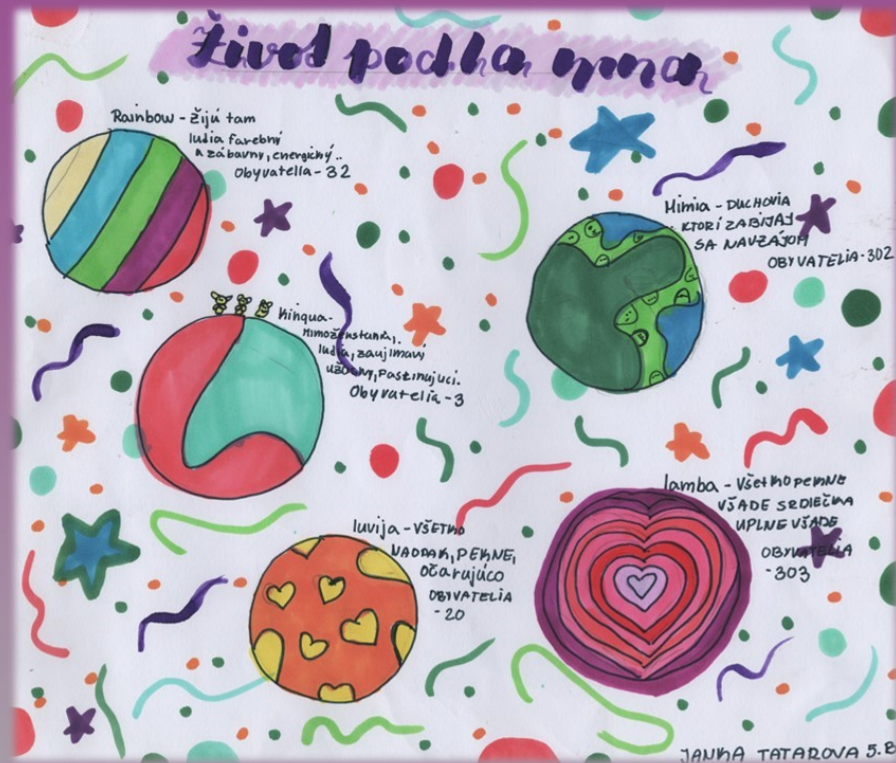 Život podla mna
Rainbow - žijú tam
ludia farebný
a zábavny, energický..
Obyvatelia - 32
Mimia - DUCHOVIA
KTORÍ ZABIJAJÚ
SA NAVZÁJOM
OBYVATELIA - 302
Kinqua -
Mimozemštania,
ludia, zaujimavi
užasny, Fascinujuci.
Obyvatelia - 3
lamba - všetko pekne
VŠADE SRDIEČKA
UPLNE VŠADE
OBYVATELIA
- 303
luvija - VŠETKO
NAOPAK, PEKNE,
Očarujúco
OBYVATELIA
- 20
JANKA TATAROVA 5.B